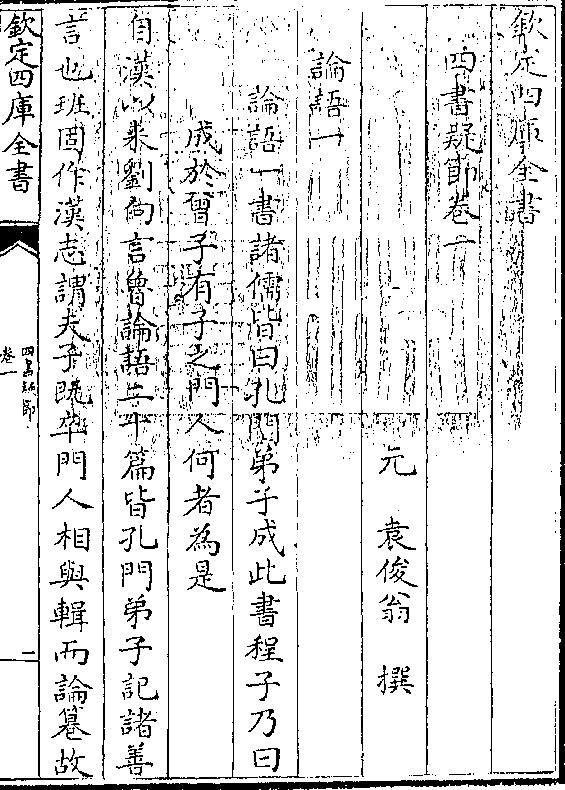 欽定四庫全書
四書疑節卷一
元 袁俊翁 撰
論語一
論語一書諸儒皆曰孔門弟子成此書程子乃曰
成於曾子有子之門人何者為是
自漢以來劉向言魯論語二十篇皆孔門弟子記諸善
言也班固作漢志謂夫子既卒門人相與輯而論篹故
欽定四庫全書
四書疑節
卷一
一